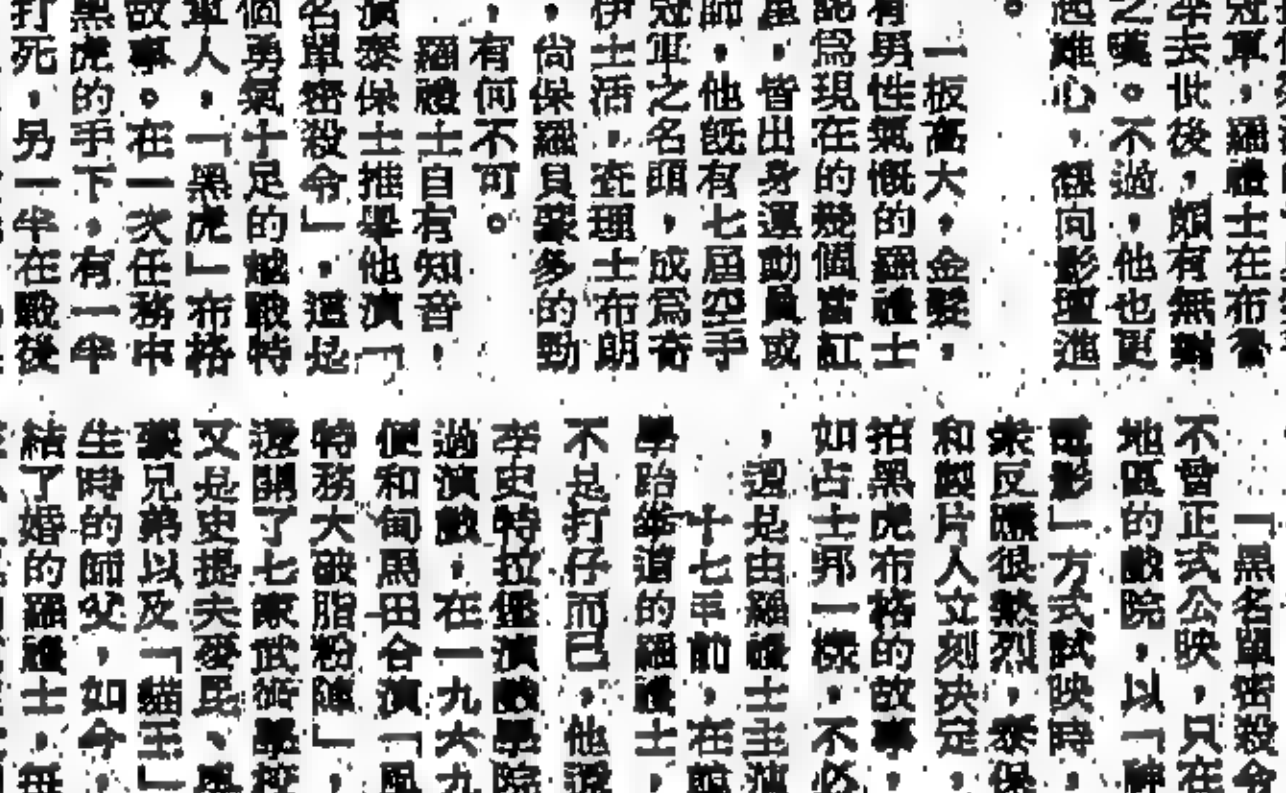 冠軍，羅禮士在布魯
李去世後，頗有無敵
之嘆。不過，他也更
趨雄心，樣向影壇進
。
一板高大，金髮，
有男性氣慨的羅禮士
認爲現在的幾個當紅
星，皆出身運動員或
師，他旣有七屆空手
冠軍之名銜，成爲奇
伊士活，查理士布朗
，尚保羅貝蒙多的勁
，有何不可。
羅禮士自有知音，
演泰保士推舉他演「
名單密殺令」，還起
個勇氣十足的越戰特
軍人，「黑虎」布格
故事。在一次任務中
黑虎的手下，有一半
打死，另一半在戰後
「黑名單密殺令
不曾正式公映，只在
地區的戲院，以「神
電影」方式試映時，
衆反應很熱烈，泰保
和製片人立刻決定，
拍黑虎布格的故事，
如占士邦一樣，不必
，還是由羅禮士主演
十七年前，在韓
學跆拳道的羅禮士，
不是打仔而已，他還
李史特拉堡演戲學院
過演戲，在一九六九
便和甸馬田合演「風
特務大破脂粉陣」，
還開了七家武術學校
又是史提夫麥昆、奧
蒙兄弟以及「貓王」
生時的師父，如今，
結了婚的羅禮士，每